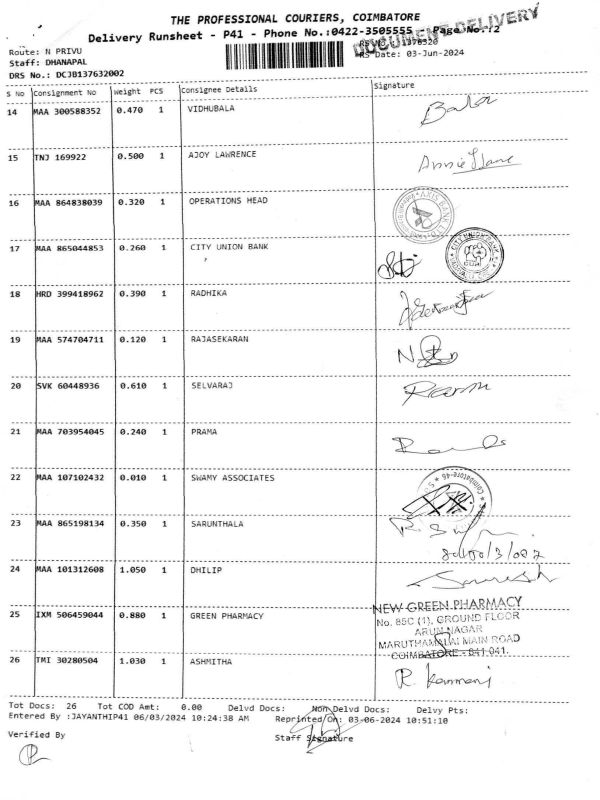 THE PROFESSIONAL COURIERS, COIMBATORE
DOCUMENT DELIVERY
Delivery Runsheet - P41 - Phone No.:0422-3505555 - Page No.:2
Route: N PRIVU
Staff: DHANAPAL
DRS Date: 03-Jun-2024
DRS No.: DCJB137632002
S No Consignment No Weight PCS Consignee Details Signature
14 MAA 300588352 0.470 1 VIDHUBALA
15 TNJ 169922 0.500 1 AJOY LAWRENCE
16 MAA 864838039 0.320 1 OPERATIONS HEAD
AXIS BANK
17 MAA 865044853 0.260 1 CITY UNION BANK
18 HRD 399418962 0.390 1 RADHIKA
19 MAA 574704711 0.120 1 RAJASEKARAN
20 SVK 60448936 0.610 1 SELVARAJ
21 MAA 703954045 0.240 1 PRAMA
22 MAA 107102432 0.010 1 SWAMY ASSOCIATES
Coimbatore-46
23 MAA 865198134 0.350 1 SARUNTHALA
24 MAA 101312608 1.050 1 DHILIP
Suresh
25 IXM 506459044 0.880 1 GREEN PHARMACY
NEW GREEN PHARMACY
No. 85C (1), GROUND FLOOR
ARUN NAGAR
MARUTHAMALAI MAIN ROAD
COIMBATORE - 641 041.
26 TMI 30280504 1.030 1 ASHMITHA
R. Kanmani
Tot Docs: 26 Tot COD Amt: 0.00 Delvd Docs: Non Delvd Docs: Delvy Pts:
Entered By :JAYANTHIP41 06/03/2024 10:24:38 AM Reprinted On: 03-06-2024 10:51:10
Verified By
Staff Signature